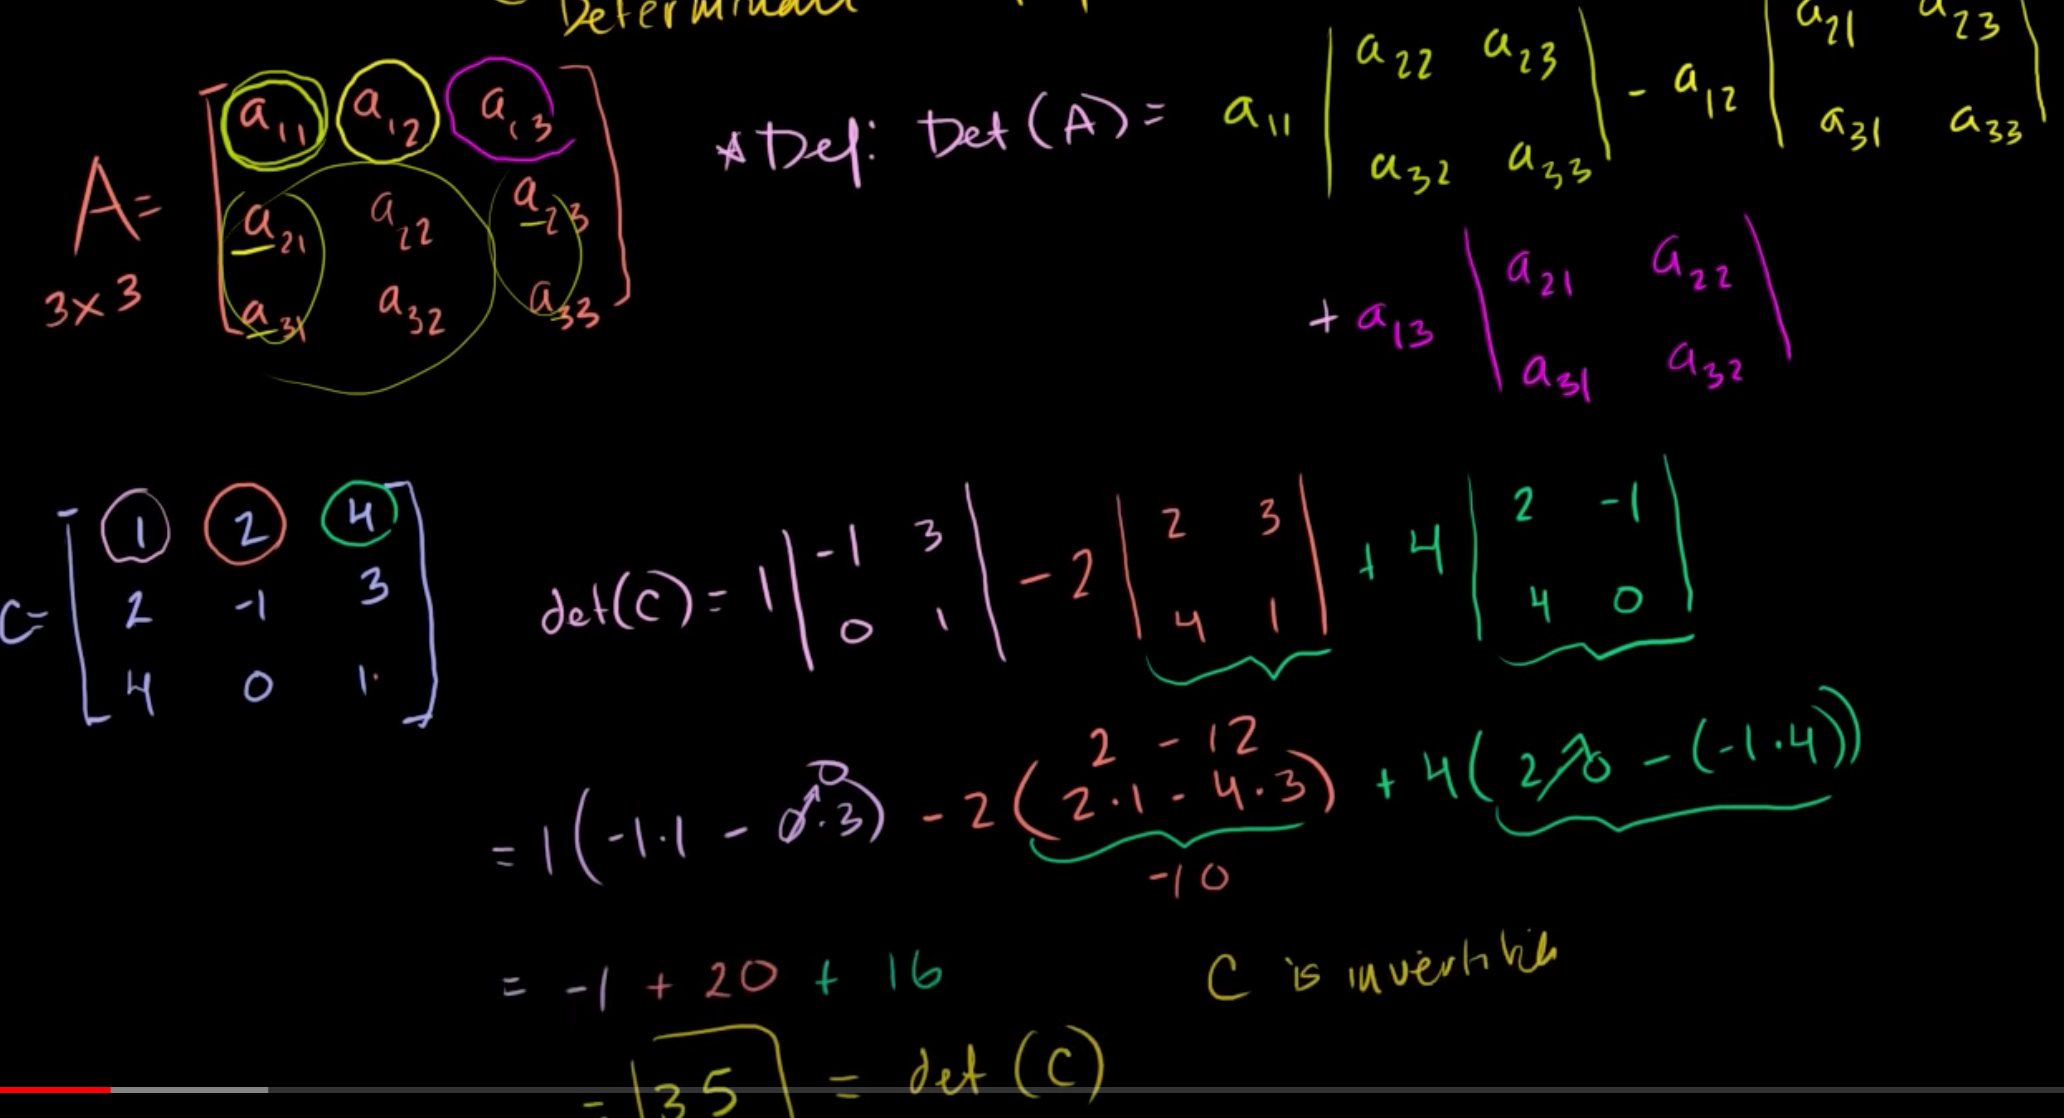 Determinant
A = [a11 a12 a13
a21 a22 a23
a31 a32 a33]
3×3
* Def: Det(A) = a11 |a22 a23
a32 a33| - a12 |a21 a23
a31 a33|
+ a13 |a21 a22
a31 a32|
C = [1 2 4
2 -1 3
4 0 1]
det(C) = 1 |-1 3
0 1| - 2 |2 3
4 1| + 4 |2 -1
4 0|
0
2 - 12
= 1(-1·1 - 0·3) - 2(2·1 - 4·3) + 4(2·0 - (-1·4))
-10
= -1 + 20 + 16
C is invertible
= 35 = det(C)